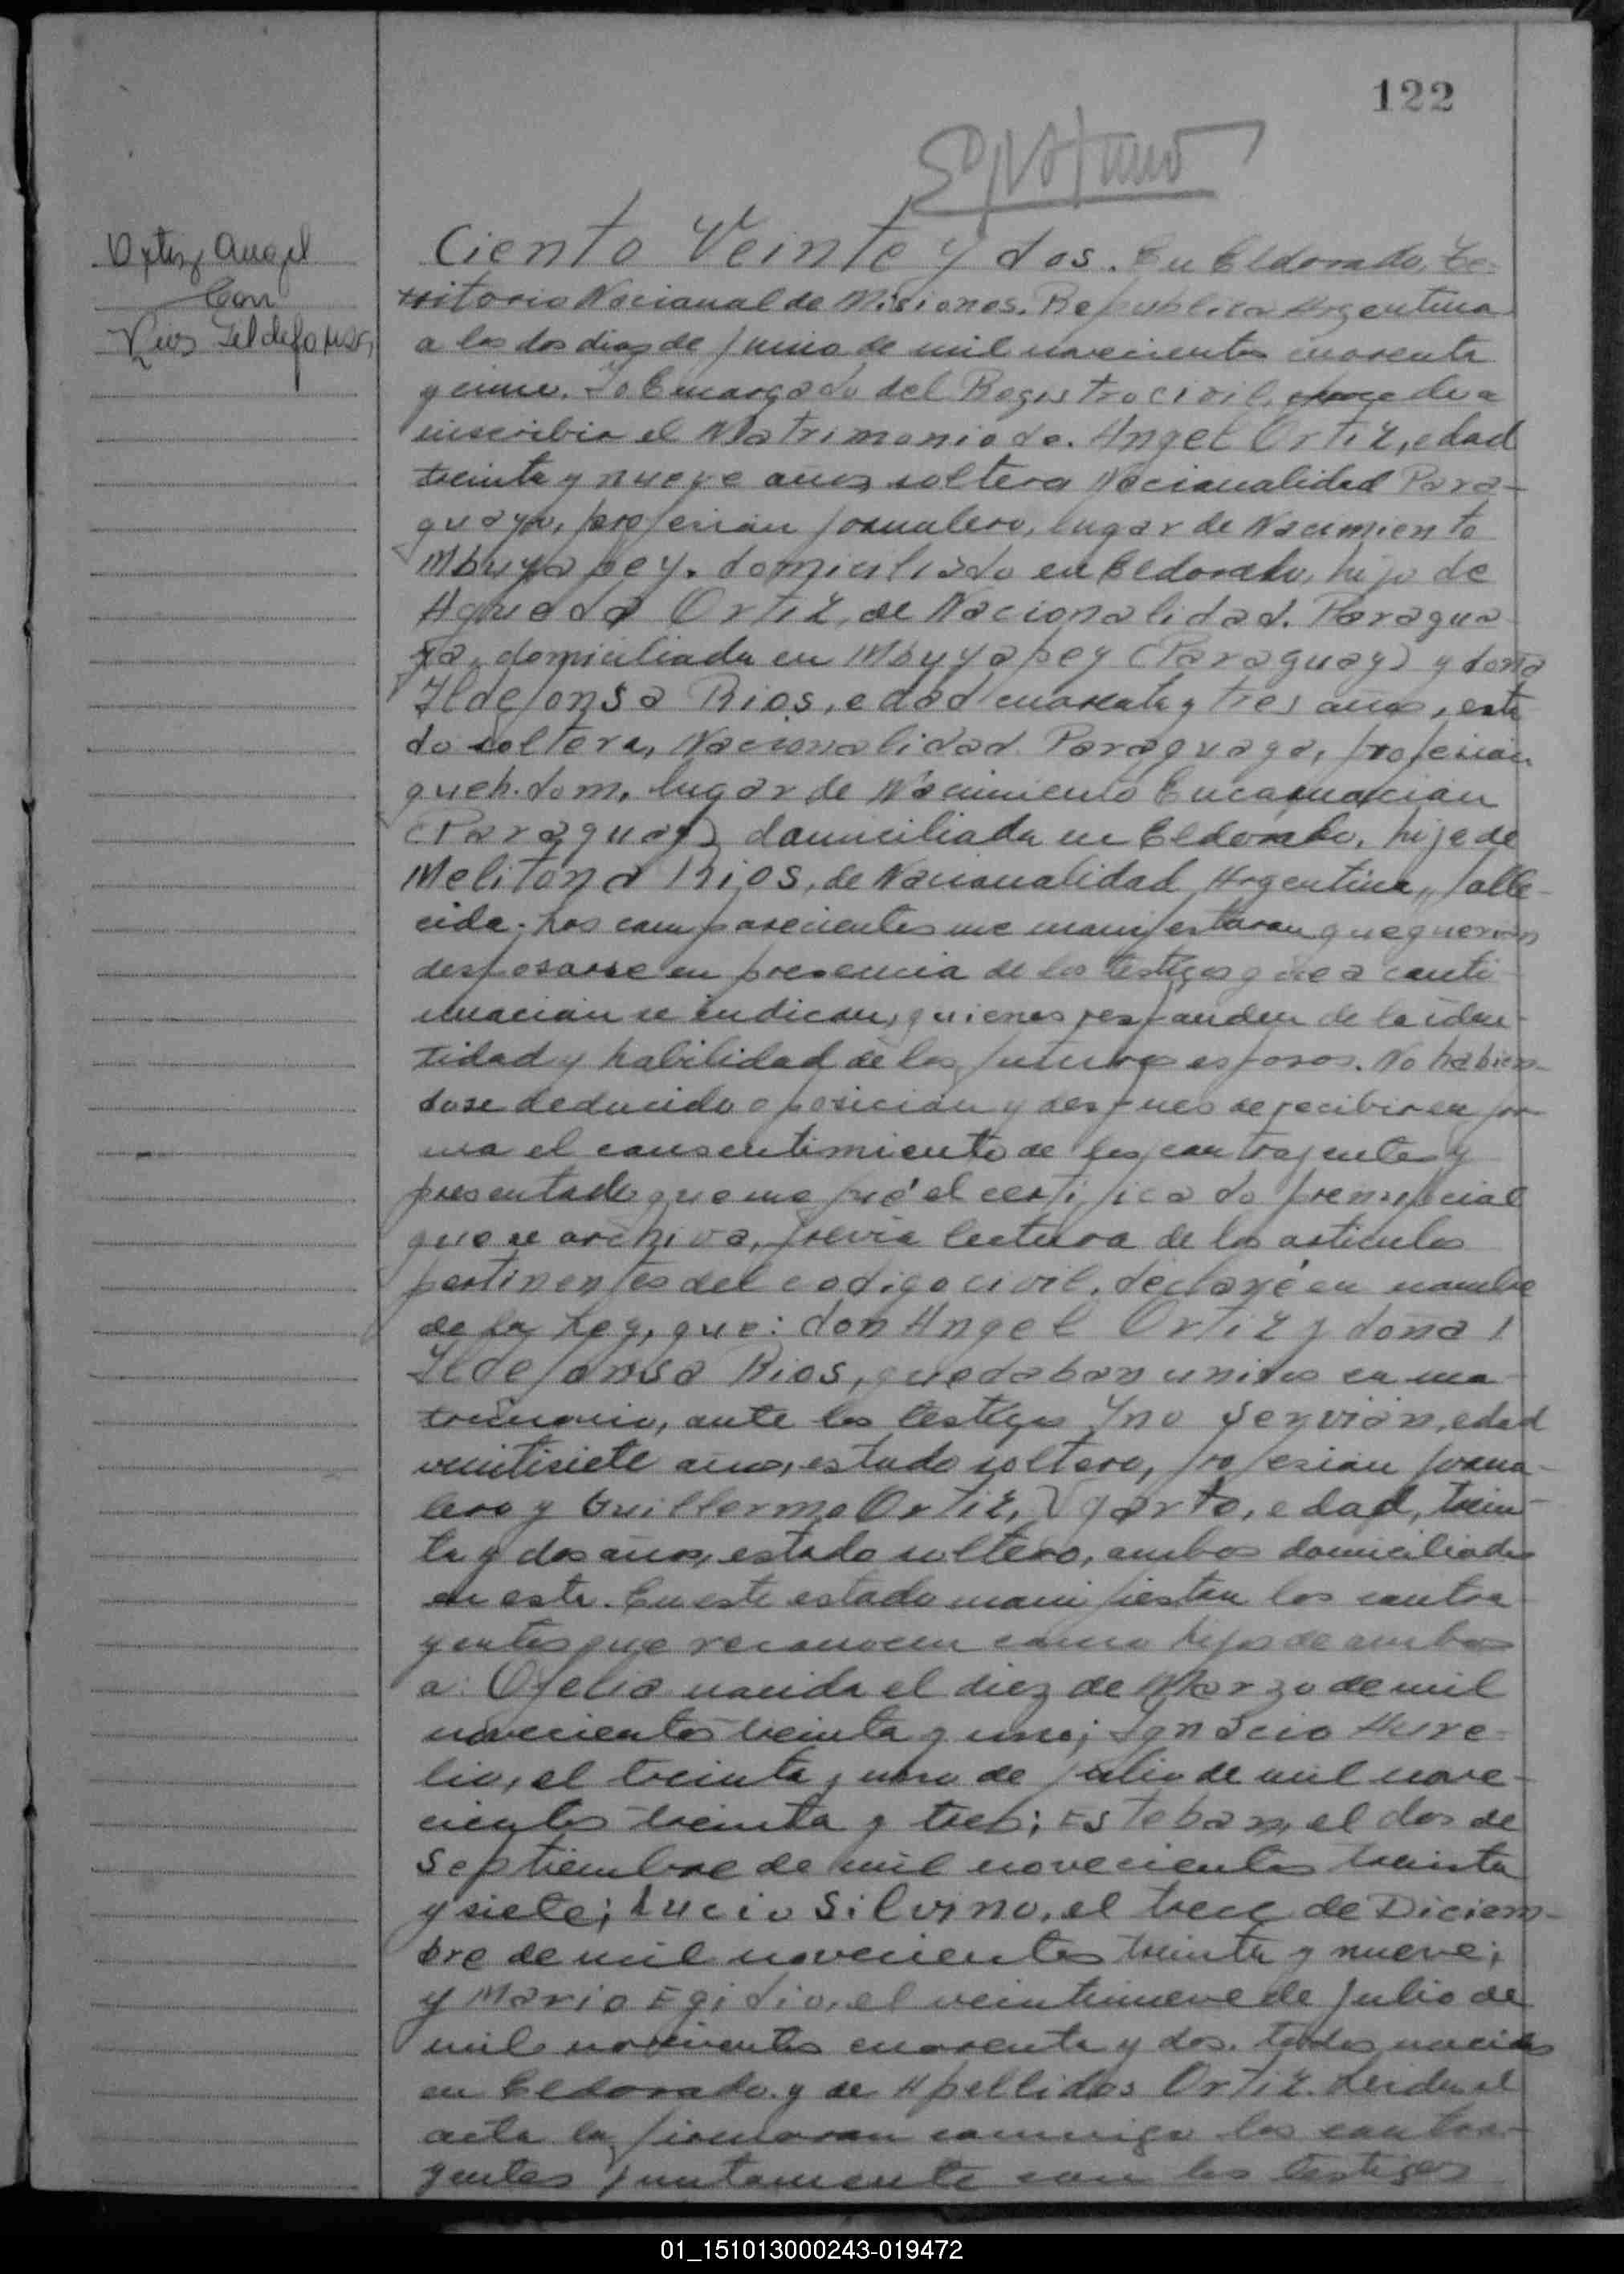 122
Ortiz Angel
Con
Rios Ildefonsa
Ciento Veinte y dos. En Eldorado, Te-
rritorio Nacional de Misiones. Republica Argentina
a los dos dias de Junio de mil novecientos cuarenta
y cinco. Yo Encargado del Registro civil, procedo a
inscribir el Matrimonio de. Angel Ortiz, edad
treinta y nueve años soltero Nacionalidad Para-
guaya, profesión jornalero, lugar de Nacimiento
Mbuyapey. domiciliado en Eldorado, hijo de
Agueda Ortiz, de Nacionalidad. Paragua
ya, domiciliada en Mbuyyapey (Paraguay) y doña
Ildefonsa Rios, edad cuarenta y tres años, esta
do soltera, Nacionalidad. Paraguaya, profesión
queh. dom, lugar de Nacimiento Encarnación
(Paraguay) domiciliada en Eldorado, hija de
Melitona Rios, de Nacionalidad Argentina, falle-
cida. Los comparecientes me manifestaron que querian
desposarse en presencia de los testigos que a conti
nuación se indican, quienes responden de la iden-
tidad y habilidad de los futuros esposos. No habien-
dose deducido oposición y despues de recibir en for-
ma el consentimiento de los contrayentes y
presentado que me fué el certificado prenupcial
que se archiva, previa lectura de los articulos
pertinentes del codigo civil, declaré en nombre
de la Ley, que: don Angel Ortiz y doña
Ildefonsa Rios, quedaban unidos en ma-
trimonio, ante los testigos Ino Servián, edad
veintisiete años, estado soltero, profesión jorna-
lero y Guillermo Ortiz, Ugarto, edad, trein-
ta y dos años, estado soltero, ambos domiciliados
en esta. En este estado manifiestan los contra
yentes que reconocen como hijos de ambos
a: Ofelia nacida el diez de Marzo de mil
novecientos treinta y uno; Ignacio Aure-
lio, el treinta y uno de julio de mil nove-
cientos treinta y tres; Esteban, el dos de
Septiembre de mil novecientos treinta
y siete; Lucio Silvino, el trece de Diciem-
bre de mil novecientos treinta y nueve;
y Mario Egidio, el veintinueve de Julio de
mil novecientos cuarenta y dos. todos nacidos
en Eldorado. y de Apellidos Ortiz. Leida el
acta la firmaron conmigo los contra-
yentes juntamente con los testigos
01_151013000243-019472